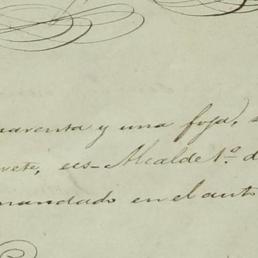 uarenta y una foja,
rete, ees-Alcalde 1.º d
mandado en el auto